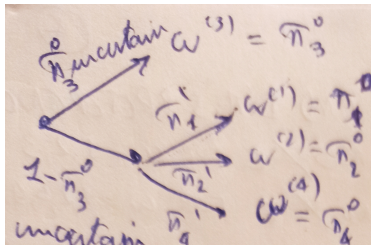 π̄₃⁰ uncertain ω⁽³⁾ = π̄₃⁰
π̄₁¹ ω⁽¹⁾ = π̄₁⁰
ω⁽²⁾ = π̄₂⁰
1 - π̄₃⁰ π̄₂¹
π̄₄¹ ω⁽⁴⁾ = π̄₄⁰
uncertain